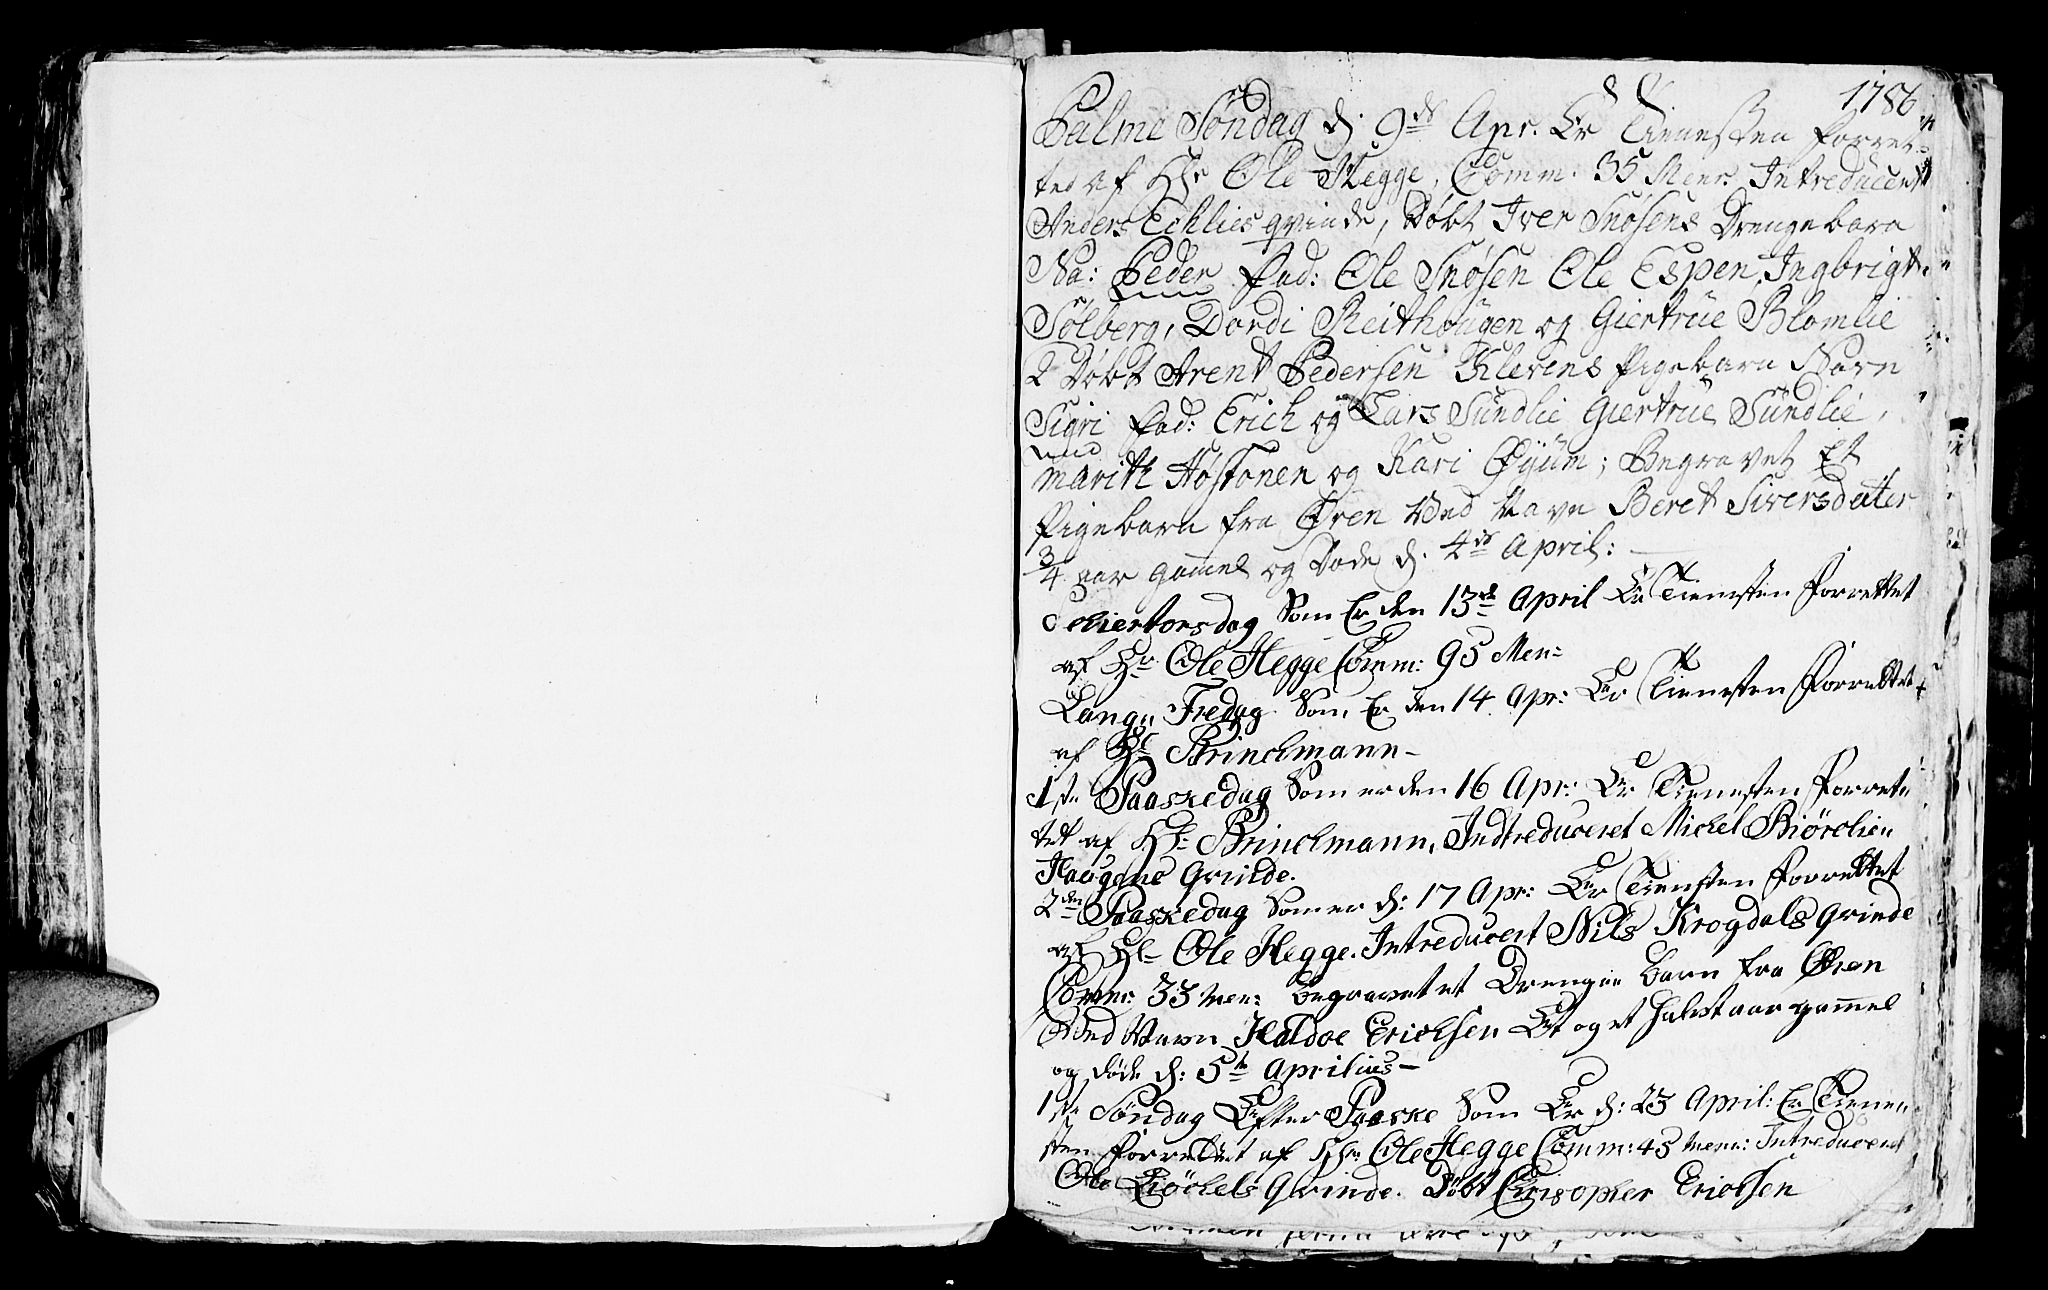 1786
Palme Søndag d. 9de Apr. Er Tienesten forret-
tet af Hr Ole Hegge, Comm. 35 Menr. Introduceret
Anders Echlies qvinde, Døbt Iver Snøsens Drengebarn
Na: Peder fad: Ole Snøsen Ole Espen, Ingbrigt
Solberg, Dordi Reithougen og Giertrue Blomlie
2 Døbt Arent Pedersen Klevens Pigebarn Navn
Sigri fad: Erich og Lars Sundlie Giertrue Sundlie,
Marith Høstonen og Kari Øyum; Begravet Et
Pigebarn fra Øren Ved Navn Beret Siversdater
3/4 aar gammel og Døde d. 4de April:
Schiertorsdag Som Er den 13de April Er Tienesten forrettet
af Hr Ole Hegge Comm: 95 Men:
Lang Fredag Som Er den 14 Apr: Er Tienesten Forrettet
af Hr Brinchmann –
1ste Paaskedag Som er den 16 Apr: Er Tienesten forret-
tet af Hr: Brinchmann, Indtreduceret Michel Biørclien
Haugens Qvinde.
2den Paaskedag Som er d: 17 Apr: Er Tiensten forrettet
af Hr Ole Hegge. Intreducert Nils Krogdals qvinde
Comm: 33 Men: begravet et Drenge barn fra Øren
Ved Navn Haldoe Erichsen Et og et halvt aar gammel
og døde d: 5te Aprilius –
1ste Søndag Efter Paaske Som Er d: 23 April: Er Tienen-
sten forrettet af Hr Ole Hegge Comm: 43 menn: Intreduceret
Ole Qvinde. Døbt Crisopher Erichsen